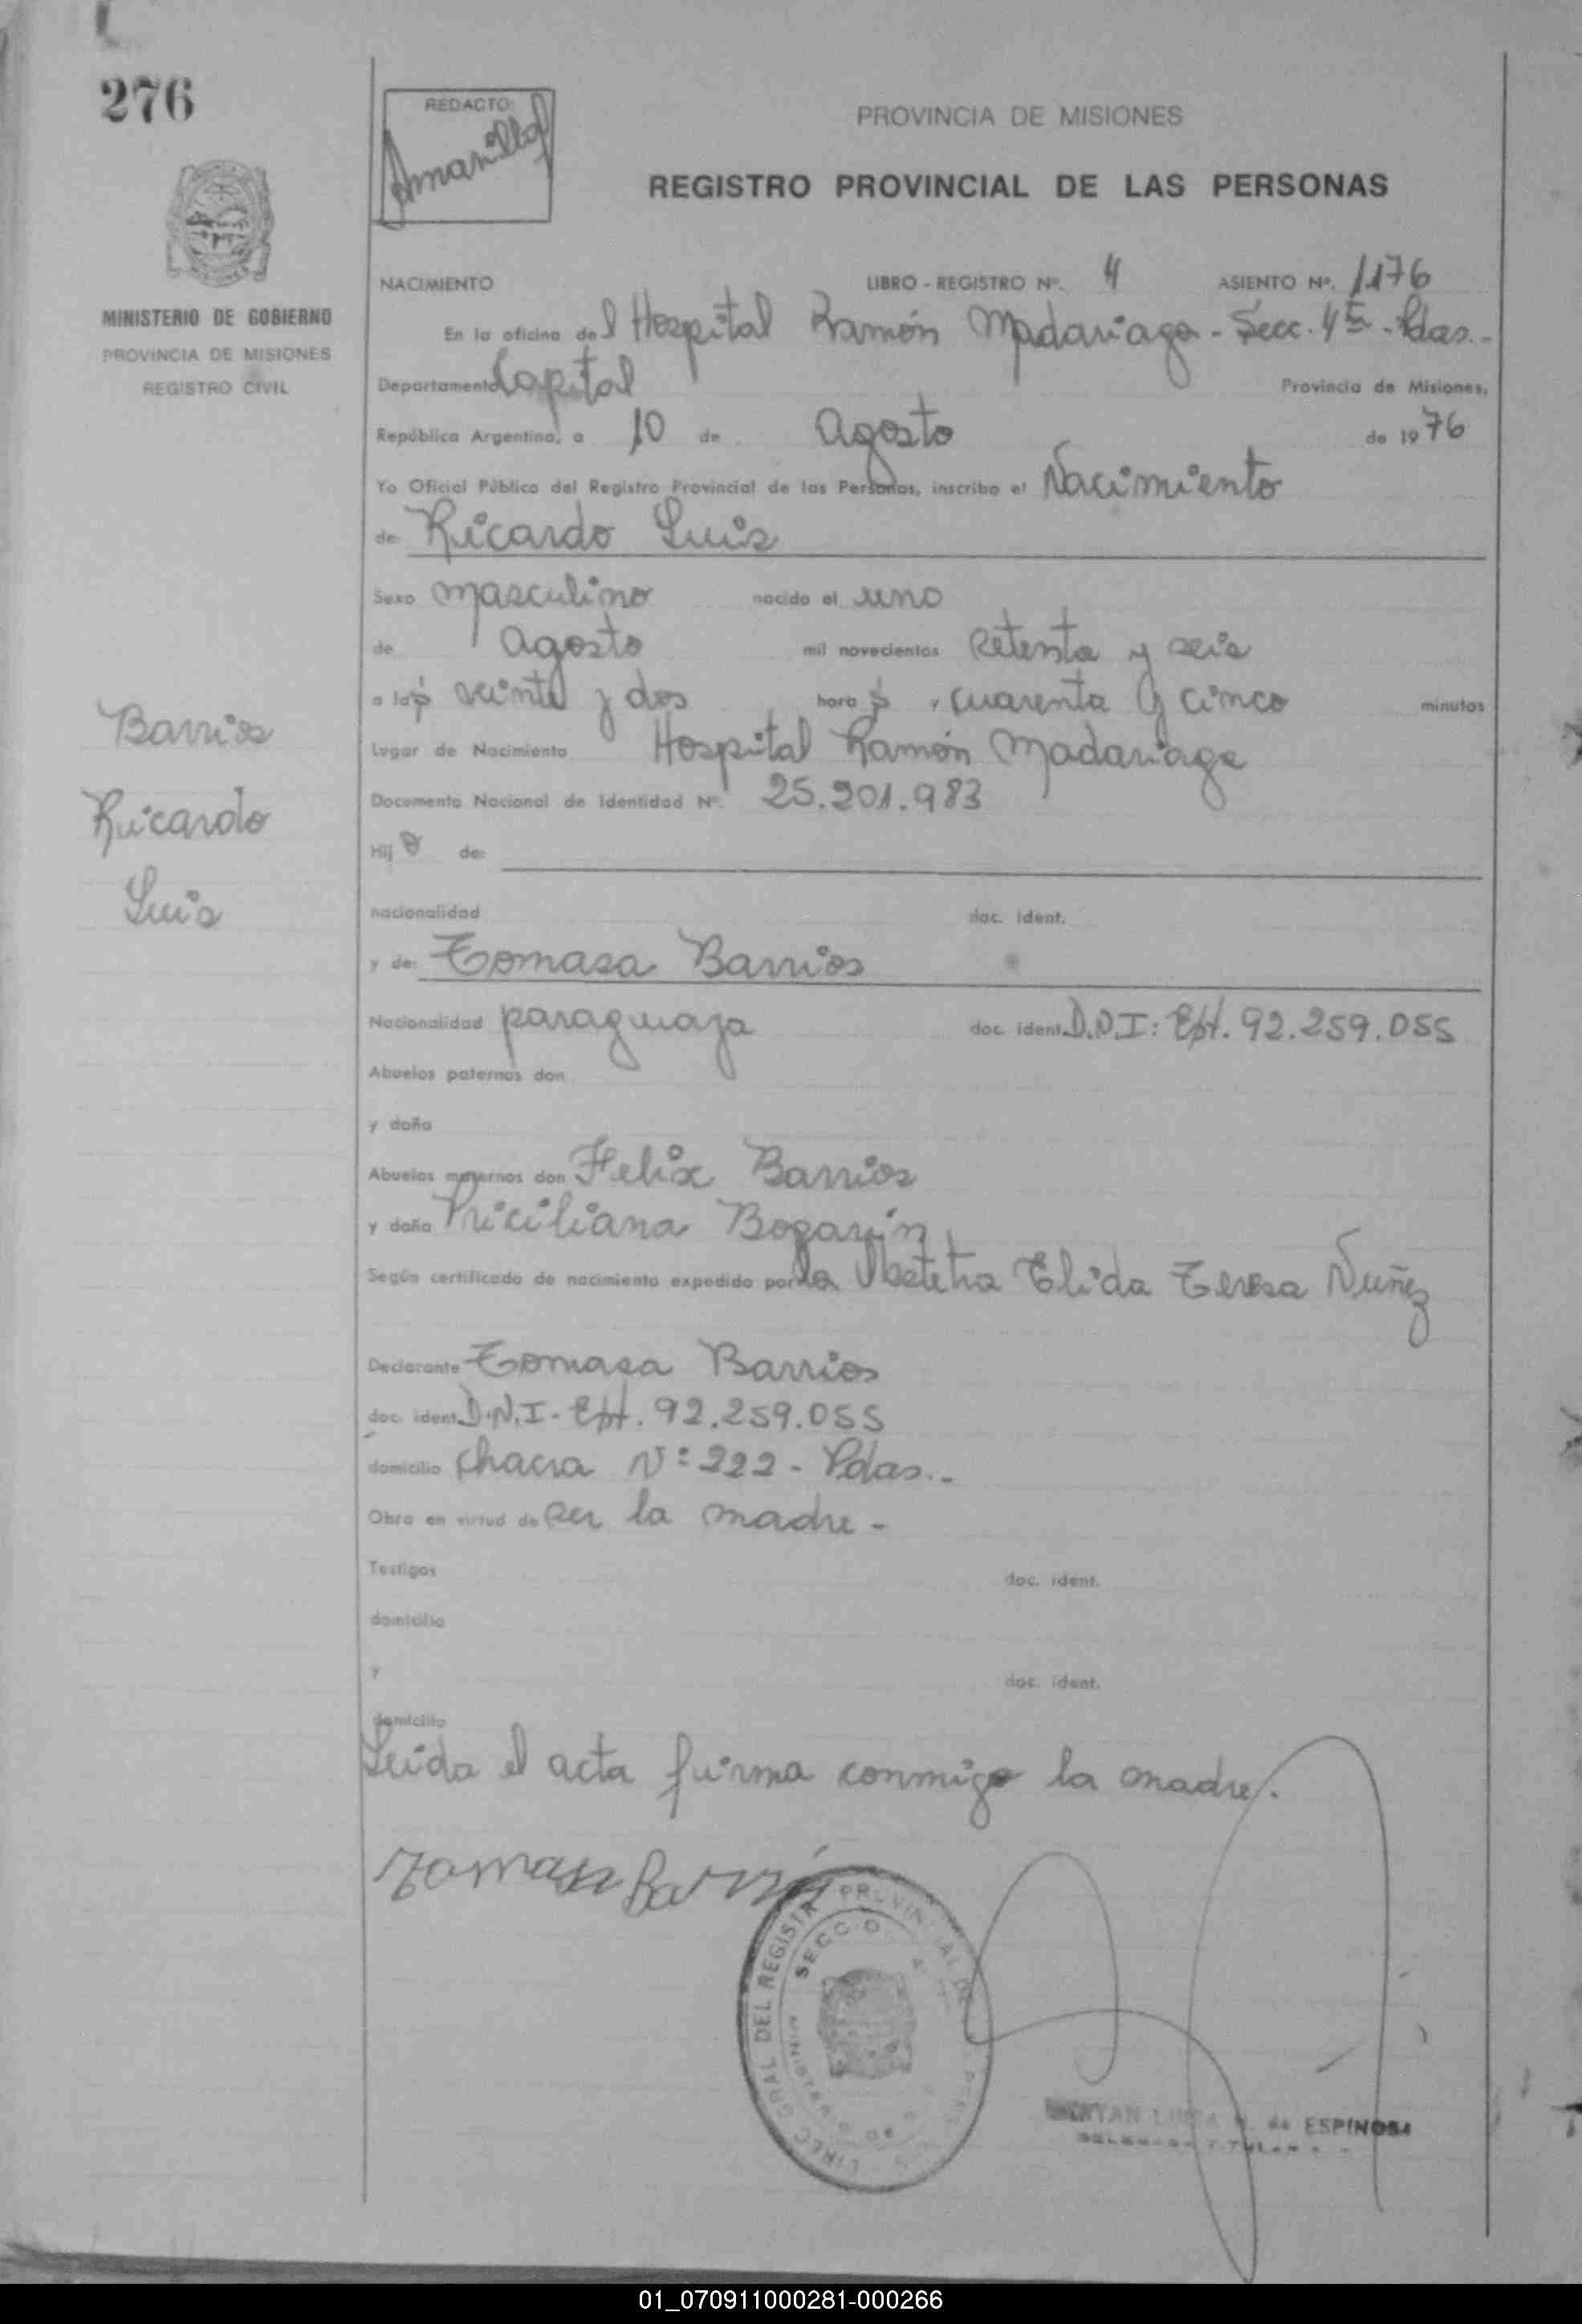 276
REDACTO:
Amarilla
PROVINCIA DE MISIONES
REGISTRO PROVINCIAL DE LAS PERSONAS
MINISTERIO DE GOBIERNO
PROVINCIA DE MISIONES
REGISTRO CIVIL
NACIMIENTO LIBRO - REGISTRO Nº. 4 ASIENTO Nº. 1176
En la oficina del Hospital Ramón Madariaga - Secc. 4ta - Pdas.-
Departamento Capital Provincia de Misiones,
República Argentina, a 10 de Agosto de 1976
Yo Oficial Público del Registro Provincial de las Personas, inscribo el Nacimiento
de Ricardo Luis
Sexo masculino nacido el uno
de agosto mil novecientos setenta y seis
a las veinte y dos horas, cuarenta y cinco minutos
Lugar de Nacimiento Hospital Ramón Madariaga
Documento Nacional de Identidad Nº. 25.201.983
Hijo de:
Barrios
Ricardo
Luis
nacionalidad doc. ident.
y de: Tomasa Barrios
Nacionalidad paraguaya doc. ident. D.N.I: Ext. 92.259.055
Abuelos paternos don
y doña
Abuelos maternos don Felix Barrios
y doña Priciliana Bogarín
Según certificado de nacimiento expedido por la Obstetra Elida Teresa Nuñez
Declarante Tomasa Barrios
doc. ident. D.N.I - Ext. 92.259.055
domicilio Chacra Nº 222 - Pdas.-
Obra en virtud de ser la madre -
Testigos doc. ident.
domicilio
y doc. ident.
domicilio
Leida el acta firma conmigo la madre.
Tomasa Barrios
DIREC. GRAL DEL REGISTRO PROVINCIAL DE LAS PERSONAS
SECCIO
de ESPINOSA
01_070911000281-000266